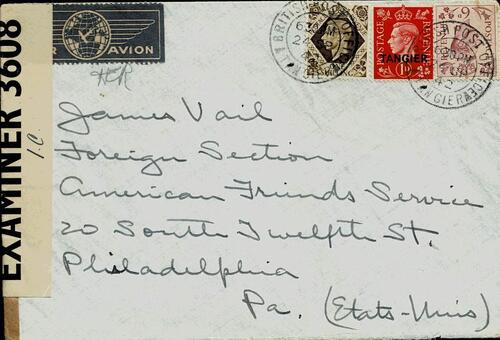 EXAMINER 3608
I.C.
AVION
HR
BRITISH POST OFFICE
TANGIER
POSTAGE REVENUE
1D
TANGIER
James Vail
Foreign Section
American Friends Service
20 South Twelfth St.
Philadelphia
Pa. (Etats-Unis)